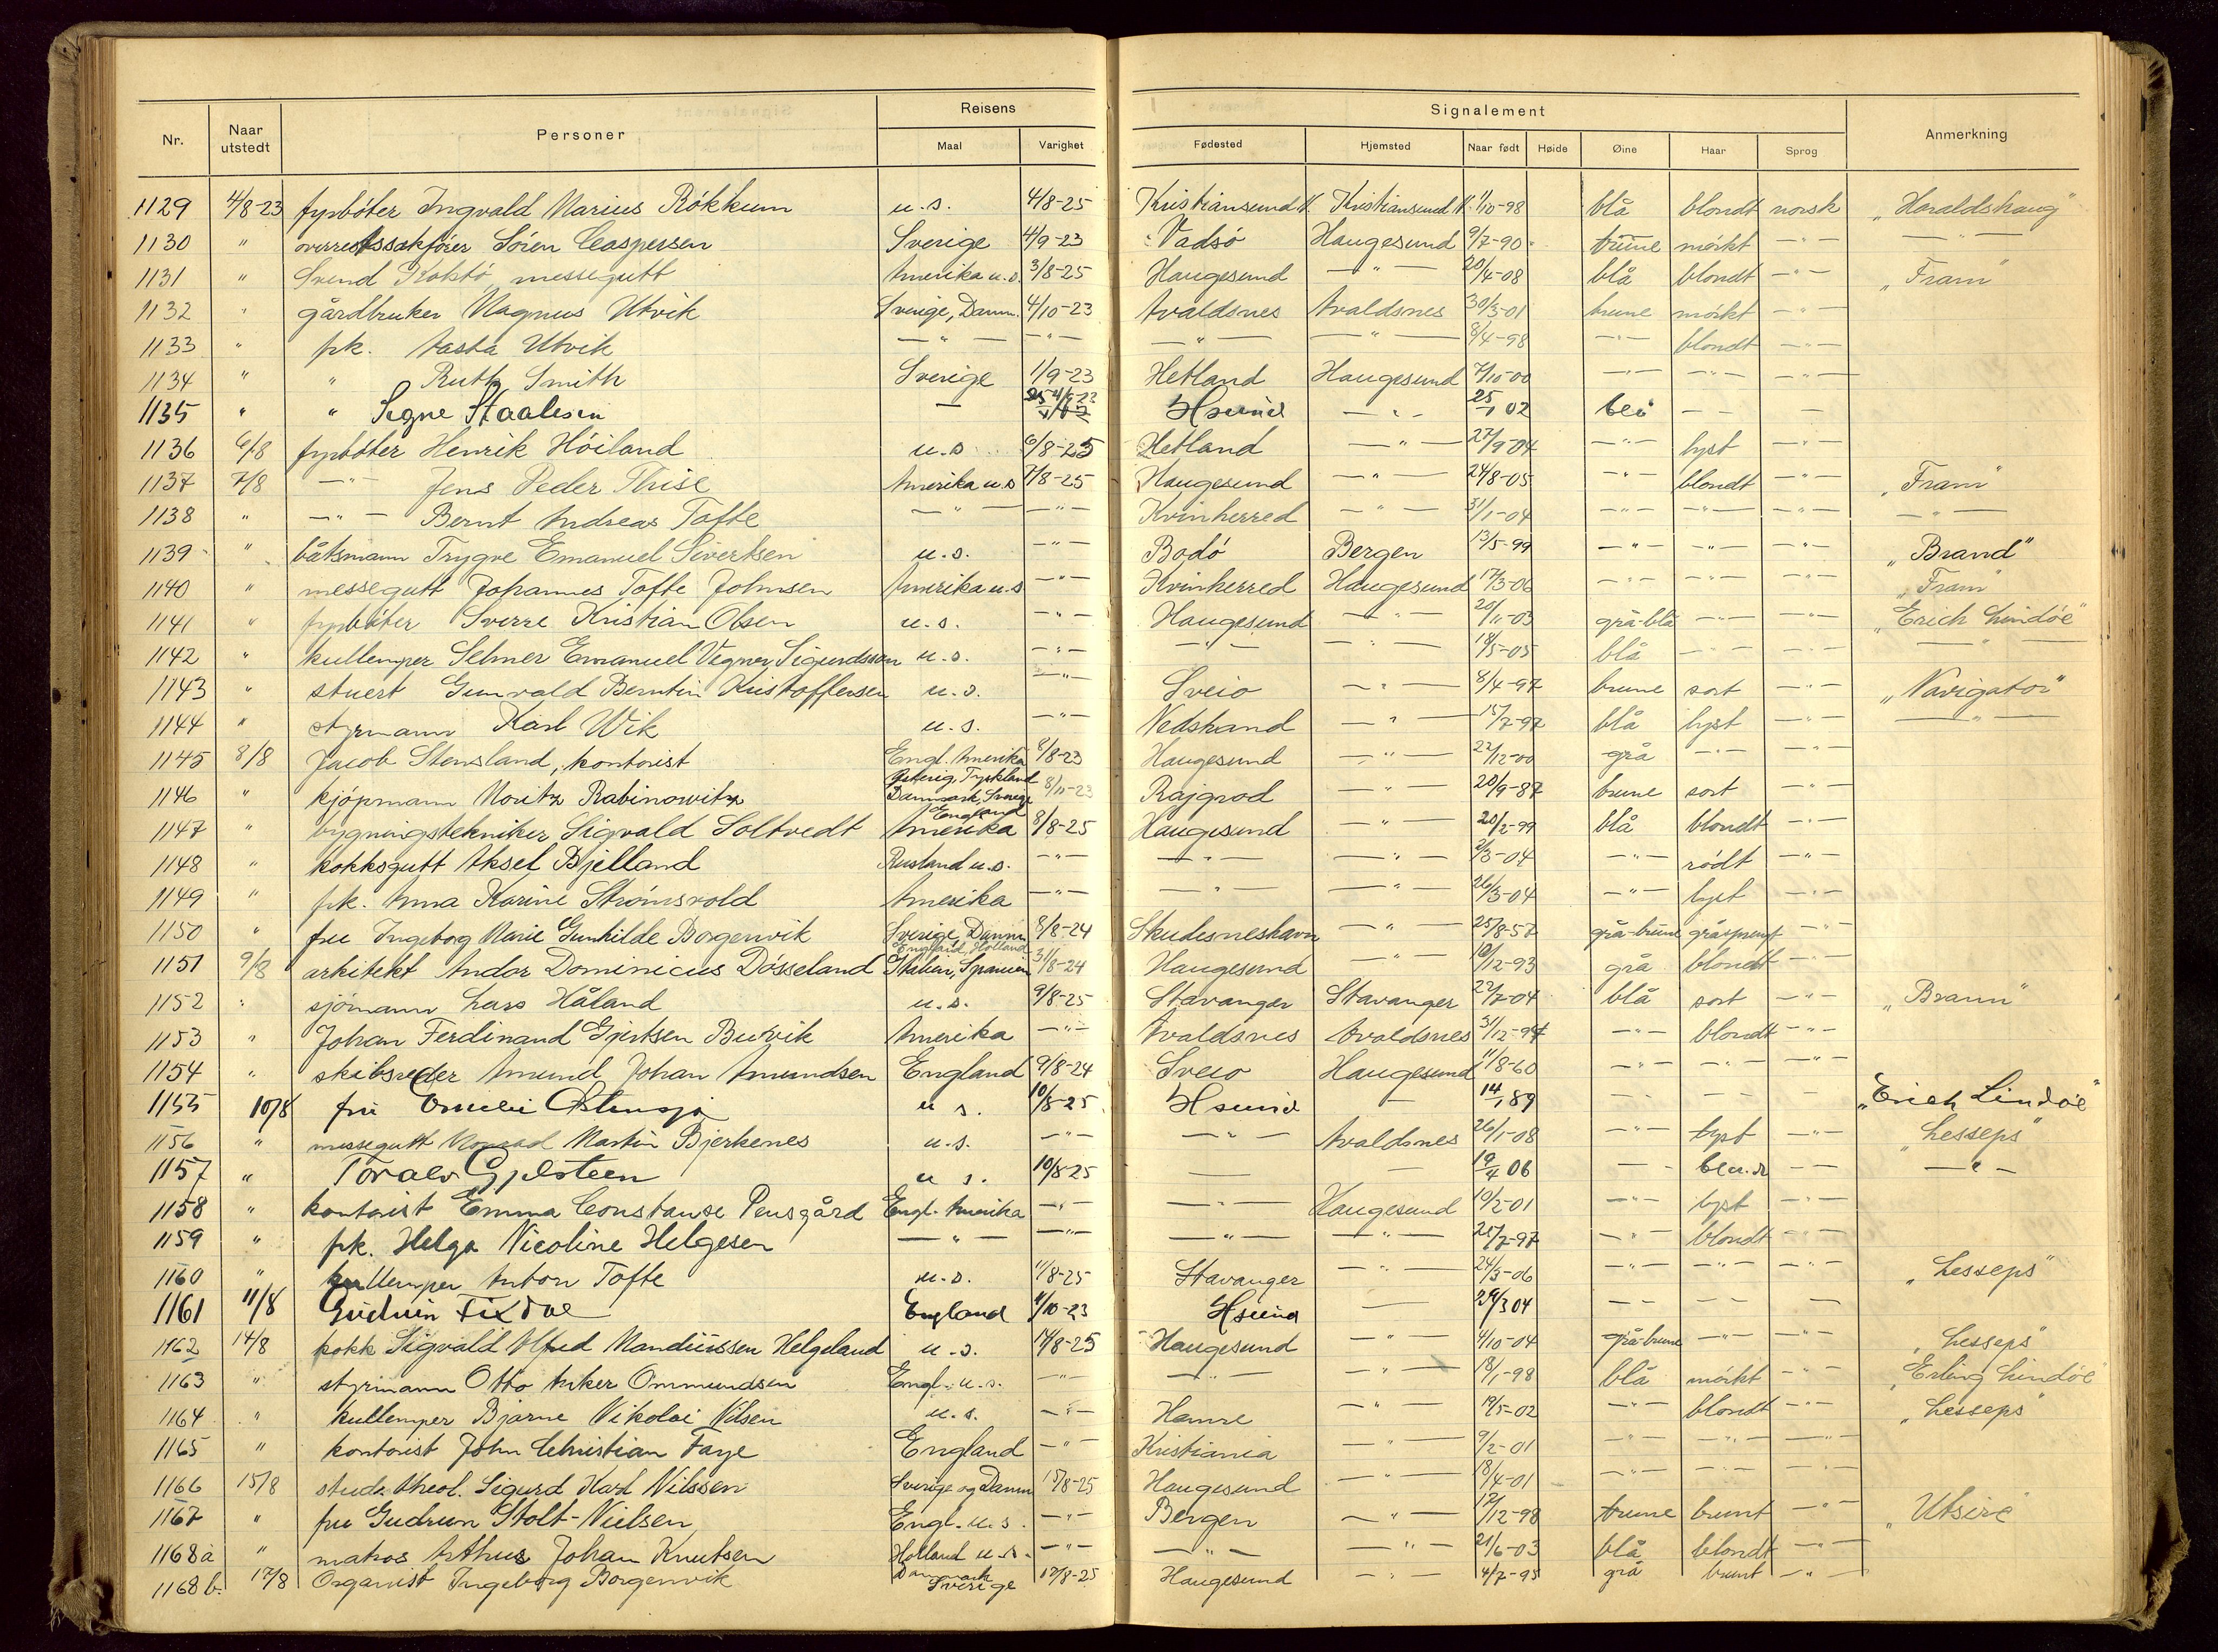 Nr. Naar utstedt Personer Reisens Maal Varighet Signalement Fødested Hjemsted Naar født Høide Øine Haar Sprog Anmerkning
1129 4/8-23 fyrbóter Ingvald Marius Rókkum u.s. 4/8-25 Kristiansund N. Kristiansund N. 1/10-98 blå blondt norsk „Haraldshaug"
1130 " overrettssakfører Sóren Caspersen Sverige 4/9-23 Vadsó Haugesund 9/7-90 brune mórkt —"— —"—
1131 " Svend Kokstó, messegutt Amerika u.s. 3/8-25 Haugesund —"— 20/4-08 blå blondt —"— „Fram"
1132 " gårdbruker Magnus Utvik Sverige, Danm. 4/10-23 Avaldsnes Avaldsnes 30/3-01 brune mórkt —"—
1133 " frk. Aasta Utvik —"— —"— —"— —"— 8/4-98 —"— blondt —"—
1134 " " Ruth Smith Sverige 11/9-23 Hetland Haugesund 7/10-00 —"— —"— —"—
1135 " " Signe Staalesen — Hsund —"— 25/1 02 blå — — —
1136 6/8 fyrbóter Henrik Hóiland u.s 6/8-25 Hetland —"— 27/9-04 —"— lyst —"—
1137 7/8 —"— Jens Peder Thise Amerika u.s 7/8-25 Haugesund —"— 24/8-05 " blondt —"— „Fram"
1138 " —"— Bernt Andreas Tofte —"— —"— Kvinherred —"— 31/1-04 —"— —"— —"— —"—
1139 " båtsmann Trygve Emanuel Sivertsen u.s. —"— Bodó Bergen 13/5-99 —"— —"— —"— „Brand"
1140 " messegutt Johannes Tofte Johnsen Amerika u.s —"— Kvinherred Haugesund 17/3-06 —"— —"— —"— „Fram"
1141 " fyrbóter Sverre Kristian Olsen u.s. —"— Haugesund —"— 20/11-03 grå-blå —"— —"— „Erich Lindóe"
1142 " kullemper Selmer Emanuel Vegner Sigurdsson u.s. —"— —"— —"— 18/5-05 blå —"— —"— —"—
1143 " stuert Gunvald Berntin Kristoffersen u.s. —"— Sveio —"— 8/4-97 brune sort —"— „Navigator"
1144 " styrmann Karl Wik u.s. —"— Nedstrand —"— 15/7-97 blå lyst —"— —"—
1145 8/8 Jacob Stensland, kontorist Engl. Amerika 8/8-23 Haugesund —"— 22/12-00 grå —"— —"—
1146 " kjópmann Moritz Rabinowitz Østerig, Tyskland Danmark, Sverige England 8/11-23 Rajgrod —"— 20/9-87 brune sort —"—
1147 " bygningstekniker Sigvald Soltvedt Amerika 8/8-25 Haugesund —"— 20/2-99 blå blondt —"—
1148 " kokksgutt Aksel Bjelland Rusland u.s. —"— —"— —"— 2/3-04 —"— ródt —"—
1149 " frk. Anna Karine Strómsvold Amerika —"— —"— —"— 26/3-04 —"— lyst —"—
1150 " fru Ingeborg Marie Gunhilde Borgenvik Sverige Danm 8/8-24 Skudesneshavn —"— 25/8-57 grå-brune gråsprengt —"—
1151 9/8 arkitekt Andor Dominicus Dósseland England, Holland Italien, Spanien 31/8-24 Haugesund —"— 10/12-93 grå blondt —"—
1152 " sjómann Lars Håland u.s. 9/8-25 Stavanger Stavanger 22/7-04 blå sort —"— „Brann"
1153 " Johan Ferdinand Gjertsen Burvik Amerika —"— Avaldsnes Avaldsnes 31/12-97 —"— blondt —"—
1154 " skibsreder Amund Johan Amundsen England 9/8-24 Sveio Haugesund 11/8-60 —"— —"— —"—
1155 10/8 fru Østensjø u s. 10/8-25 Hsund — 14/1 89 — — — „Erich Lindóe"
1156 " messegutt Konrad Martin Bjerkenes u.s. —"— —"— Avaldsnes 26/1-08 —"— lyst —"— „Lesseps"
1157 " Toralv Gjelsteen u s. 10/8-25 — — 19/4 06 — blond — —"—
1158 " kontorist Emma Constanse Pensgård Engl. Amerika —"— —"— Haugesund 10/2-01 —"— lyst —"—
1159 " frk. Helga Nicoline Helgesen —"— —"— —"— —"— 21/7-97 —"— blondt —"—
1160 " kullemper Anton Tofte u.s. 11/8-25 Stavanger —"— 24/5-06 —"— —"— —"— „Lesseps"
1161 11/8 Gudrun Fixdal England 11/10-23 Hsund — 29/3 04 — — —
1162 14/8 kokk Sigvald Alfred Mandiussen Helgeland u.s. 14/8-25 Haugesund —"— 4/10-04 grå-brune —"— —"— „Lesseps"
1163 " styrmann Otto Anker Ommundsen Engl. u.s. —"— —"— —"— 18/1-98 blå mórkt —"— „Erling Lindóe"
1164 " kullemper Bjarne Nikolai Nilsen u.s. —"— Hamre —"— 19/5-02 —"— blondt —"— „Lesseps"
1165 " kontorist John Christian Faye England —"— Kristiania —"— 9/2-01 —"— —"— —"—
1166 15/8 stud. theol. Sigurd Karl Nilssen Sverige og Danm 15/8-25 Haugesund —"— 18/4-01 —"— —"— —"—
1167 " fru Gudrun Stolt-Nielsen Engl. u.s. —"— Bergen —"— 17/12-98 brune brunt —"— „Utsire"
1168 a " matros Arthur Johan Knutsen Holland u.s. —"— —"— —"— 21/6-03 blå blondt —"—
1168 b. 17/8 Organist Ingeborg Borgenvik Danmark Sverige 17/8-25 Haugesund —"— 4/7-95 grå brunt —"—